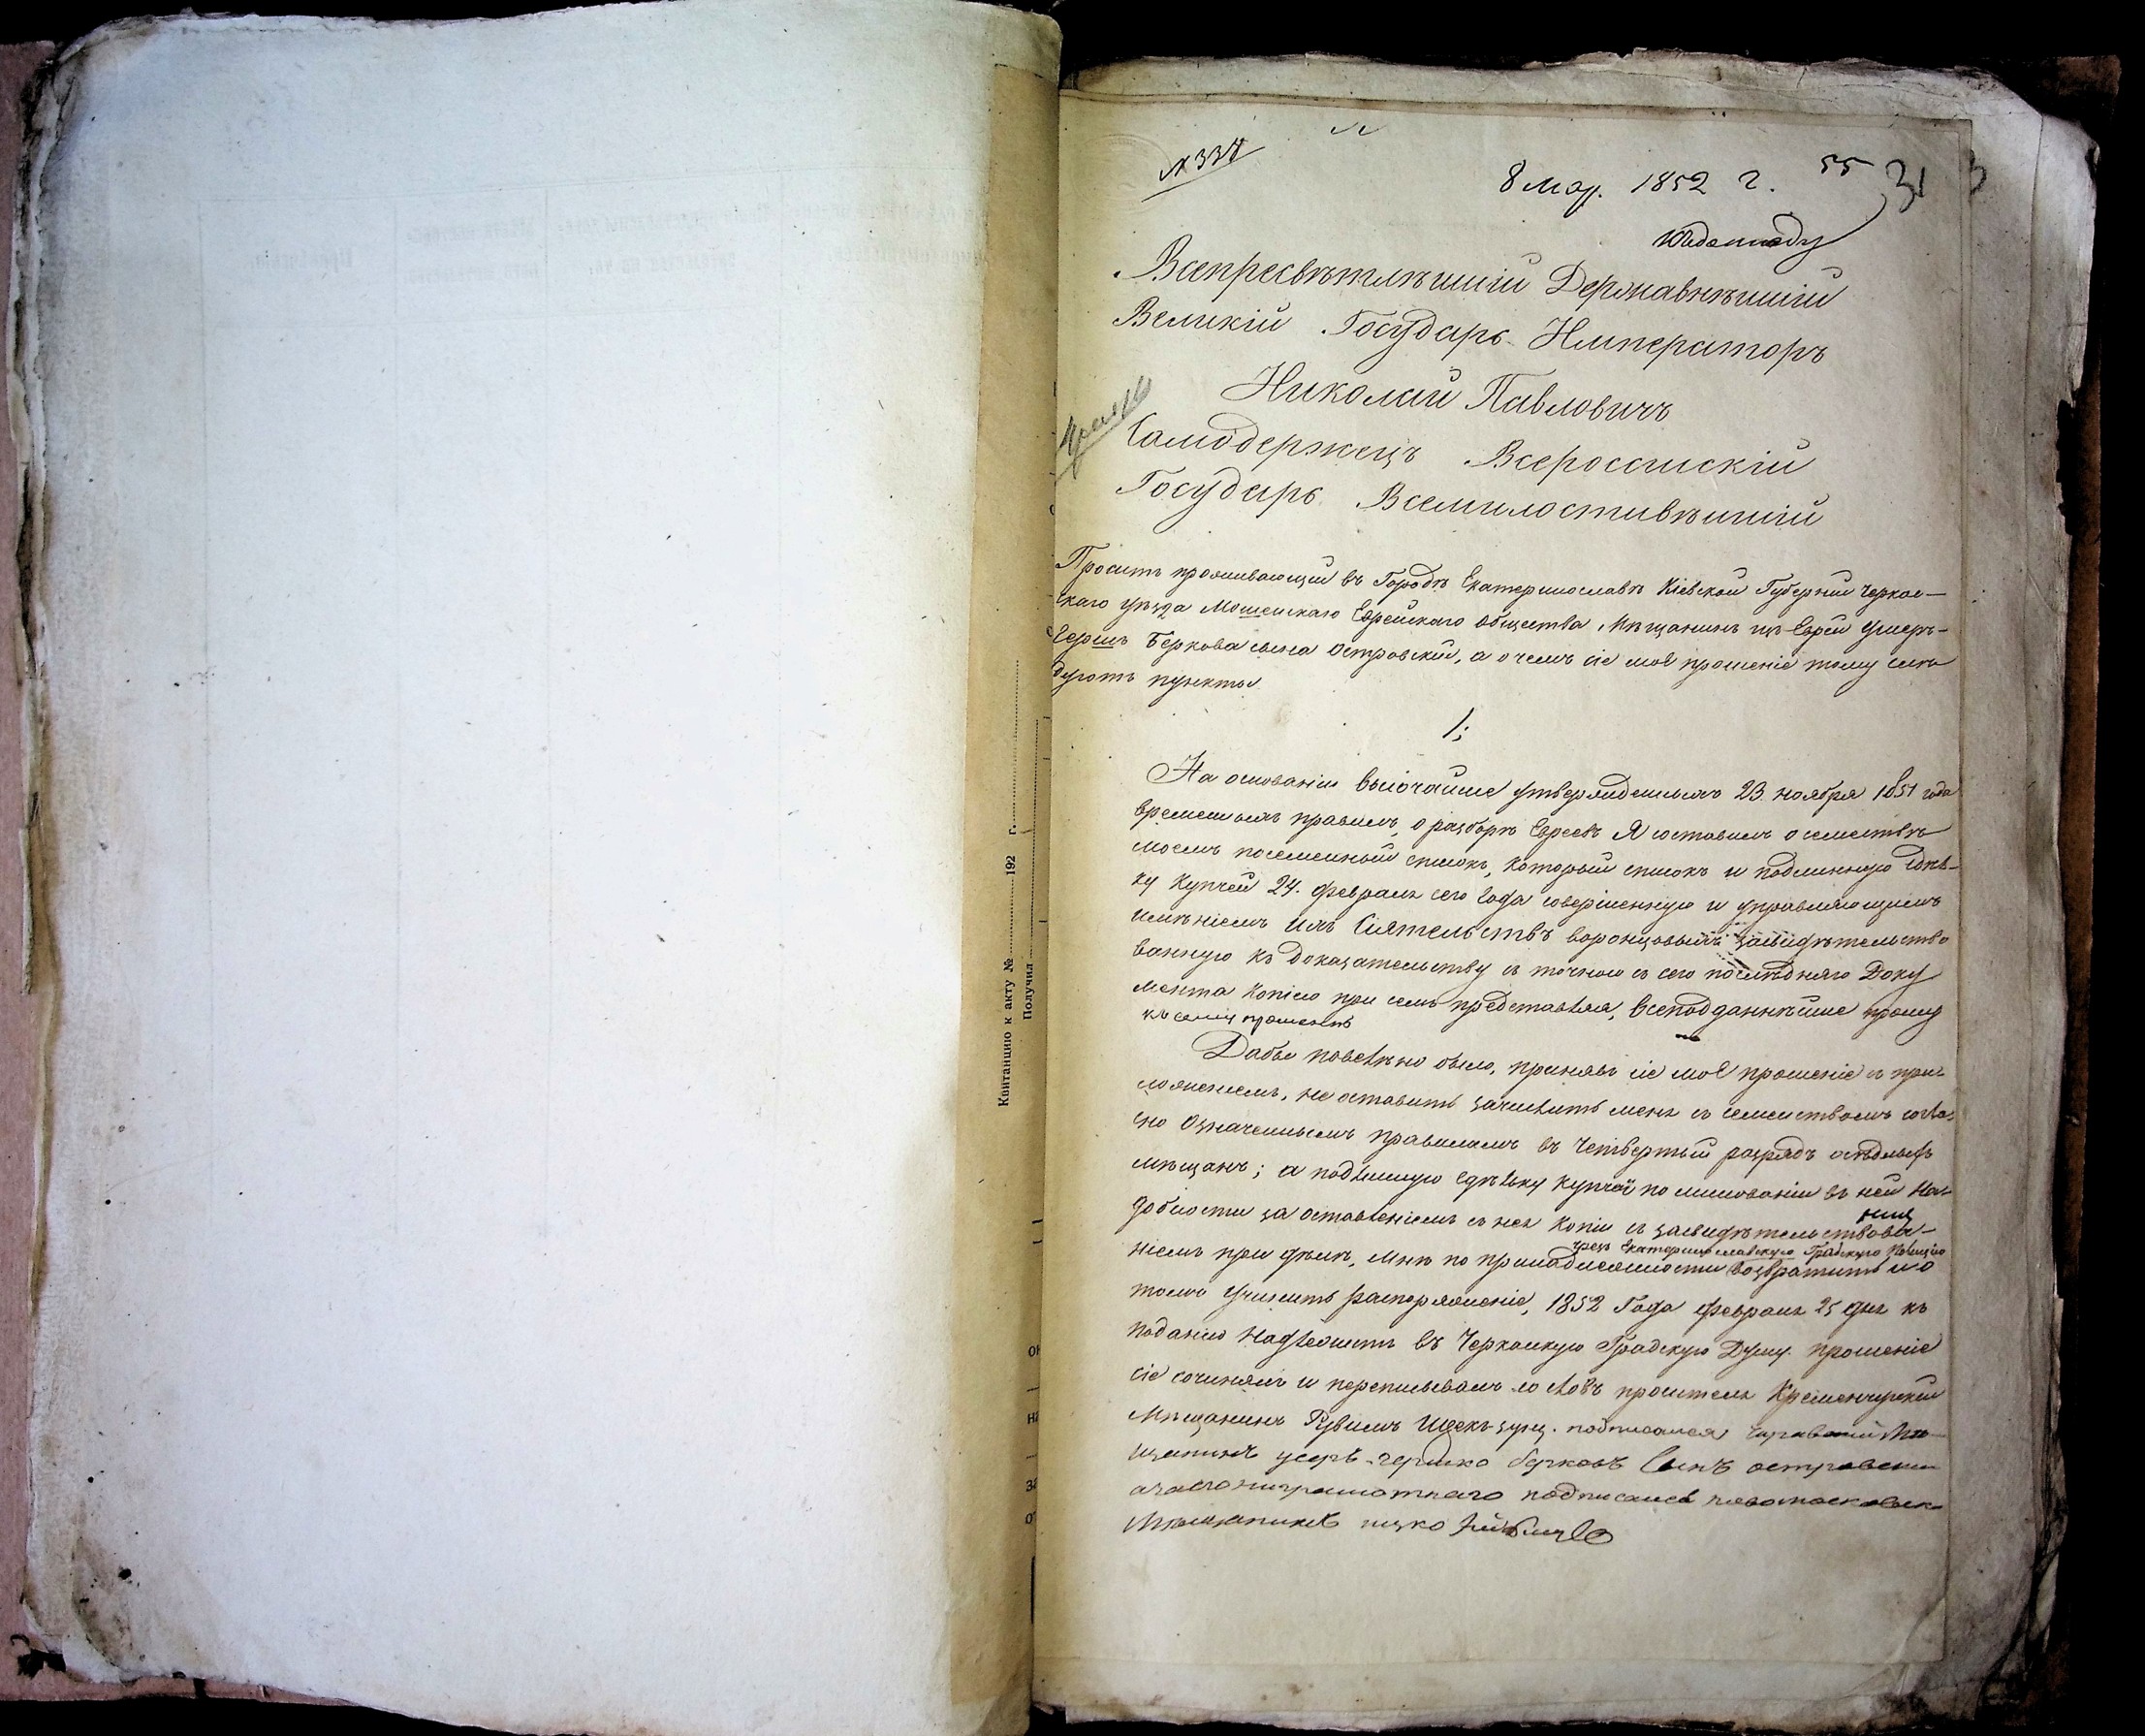 № 338
8 Мар. 1852 г.
55
31
Всепресвѣтлѣйшій Державнѣйшій
Великій Государь Императоръ
Николай Павловичъ
Самодержецъ Всероссійскій
Государь Всемилостивѣйшій
Проситъ проживающій въ Городѣ Екатеринославѣ Кіевской Губерніи Черкас-
скаго уѣзда Мошенскаго Еврейскаго общества Мѣщанинъ изъ Евреи Усеръ-
Гершъ Беркова сына Островскій, а о чемъ сіе мое прошеніе тому слѣ
дуютъ пункты
1;
На основаніи высочайше утвержденныхъ 23 ноября 1851 года
временныхъ правилъ, о разборѣ Евреевъ Я составилъ о семействѣ
моемъ посемейный списокъ, который списокъ и подлинную сдѣл-
ку купчей 24. февраля сего года совершенную и управляющимъ
имѣніемъ ихъ Сіятельствъ Воронцовыхъ засвидѣтельство
ванную къ доказательству съ точною съ сего послѣдняго Доку
мента копіею при семъ представляя, всеподданнѣйше прошу
къ сему прошенію
Дабы повелѣно было, принявъ сіе мое прошеніе съ при-
ложеніемъ, не оставить зачислить меня съ семействомъ согла-
сно означеннымъ правиламъ въ Четвертый разрядъ осѣдлыхъ
мѣщанъ; а подлинную сдѣлку купчей по минованіи въ ней на-
добности за оставленіемъ съ нея копіи съ засвидѣтельствова-
чрезъ Екатеринославскую Градскую Полицію
ніемъ при дѣлѣ, мнѣ по принадлежности возвратить и о
томъ учинить распоряженіе, 1852 Года февраля 25 дня къ
поданію надлежитъ въ Черкаскую Градскую Думу. прошеніе
сіе сочинялъ и переписывалъ со словъ просителя Кременчугскій
Мѣщанинъ Рувимъ подписался еврейскій Мѣ-
щанинъ усеръ-гершко берковъ Сынъ островский
а за его ниграмотнаго подписалса новомосковск
Мѣщанинъ ицко
Квитанцию к акту № 192 г.
Получил